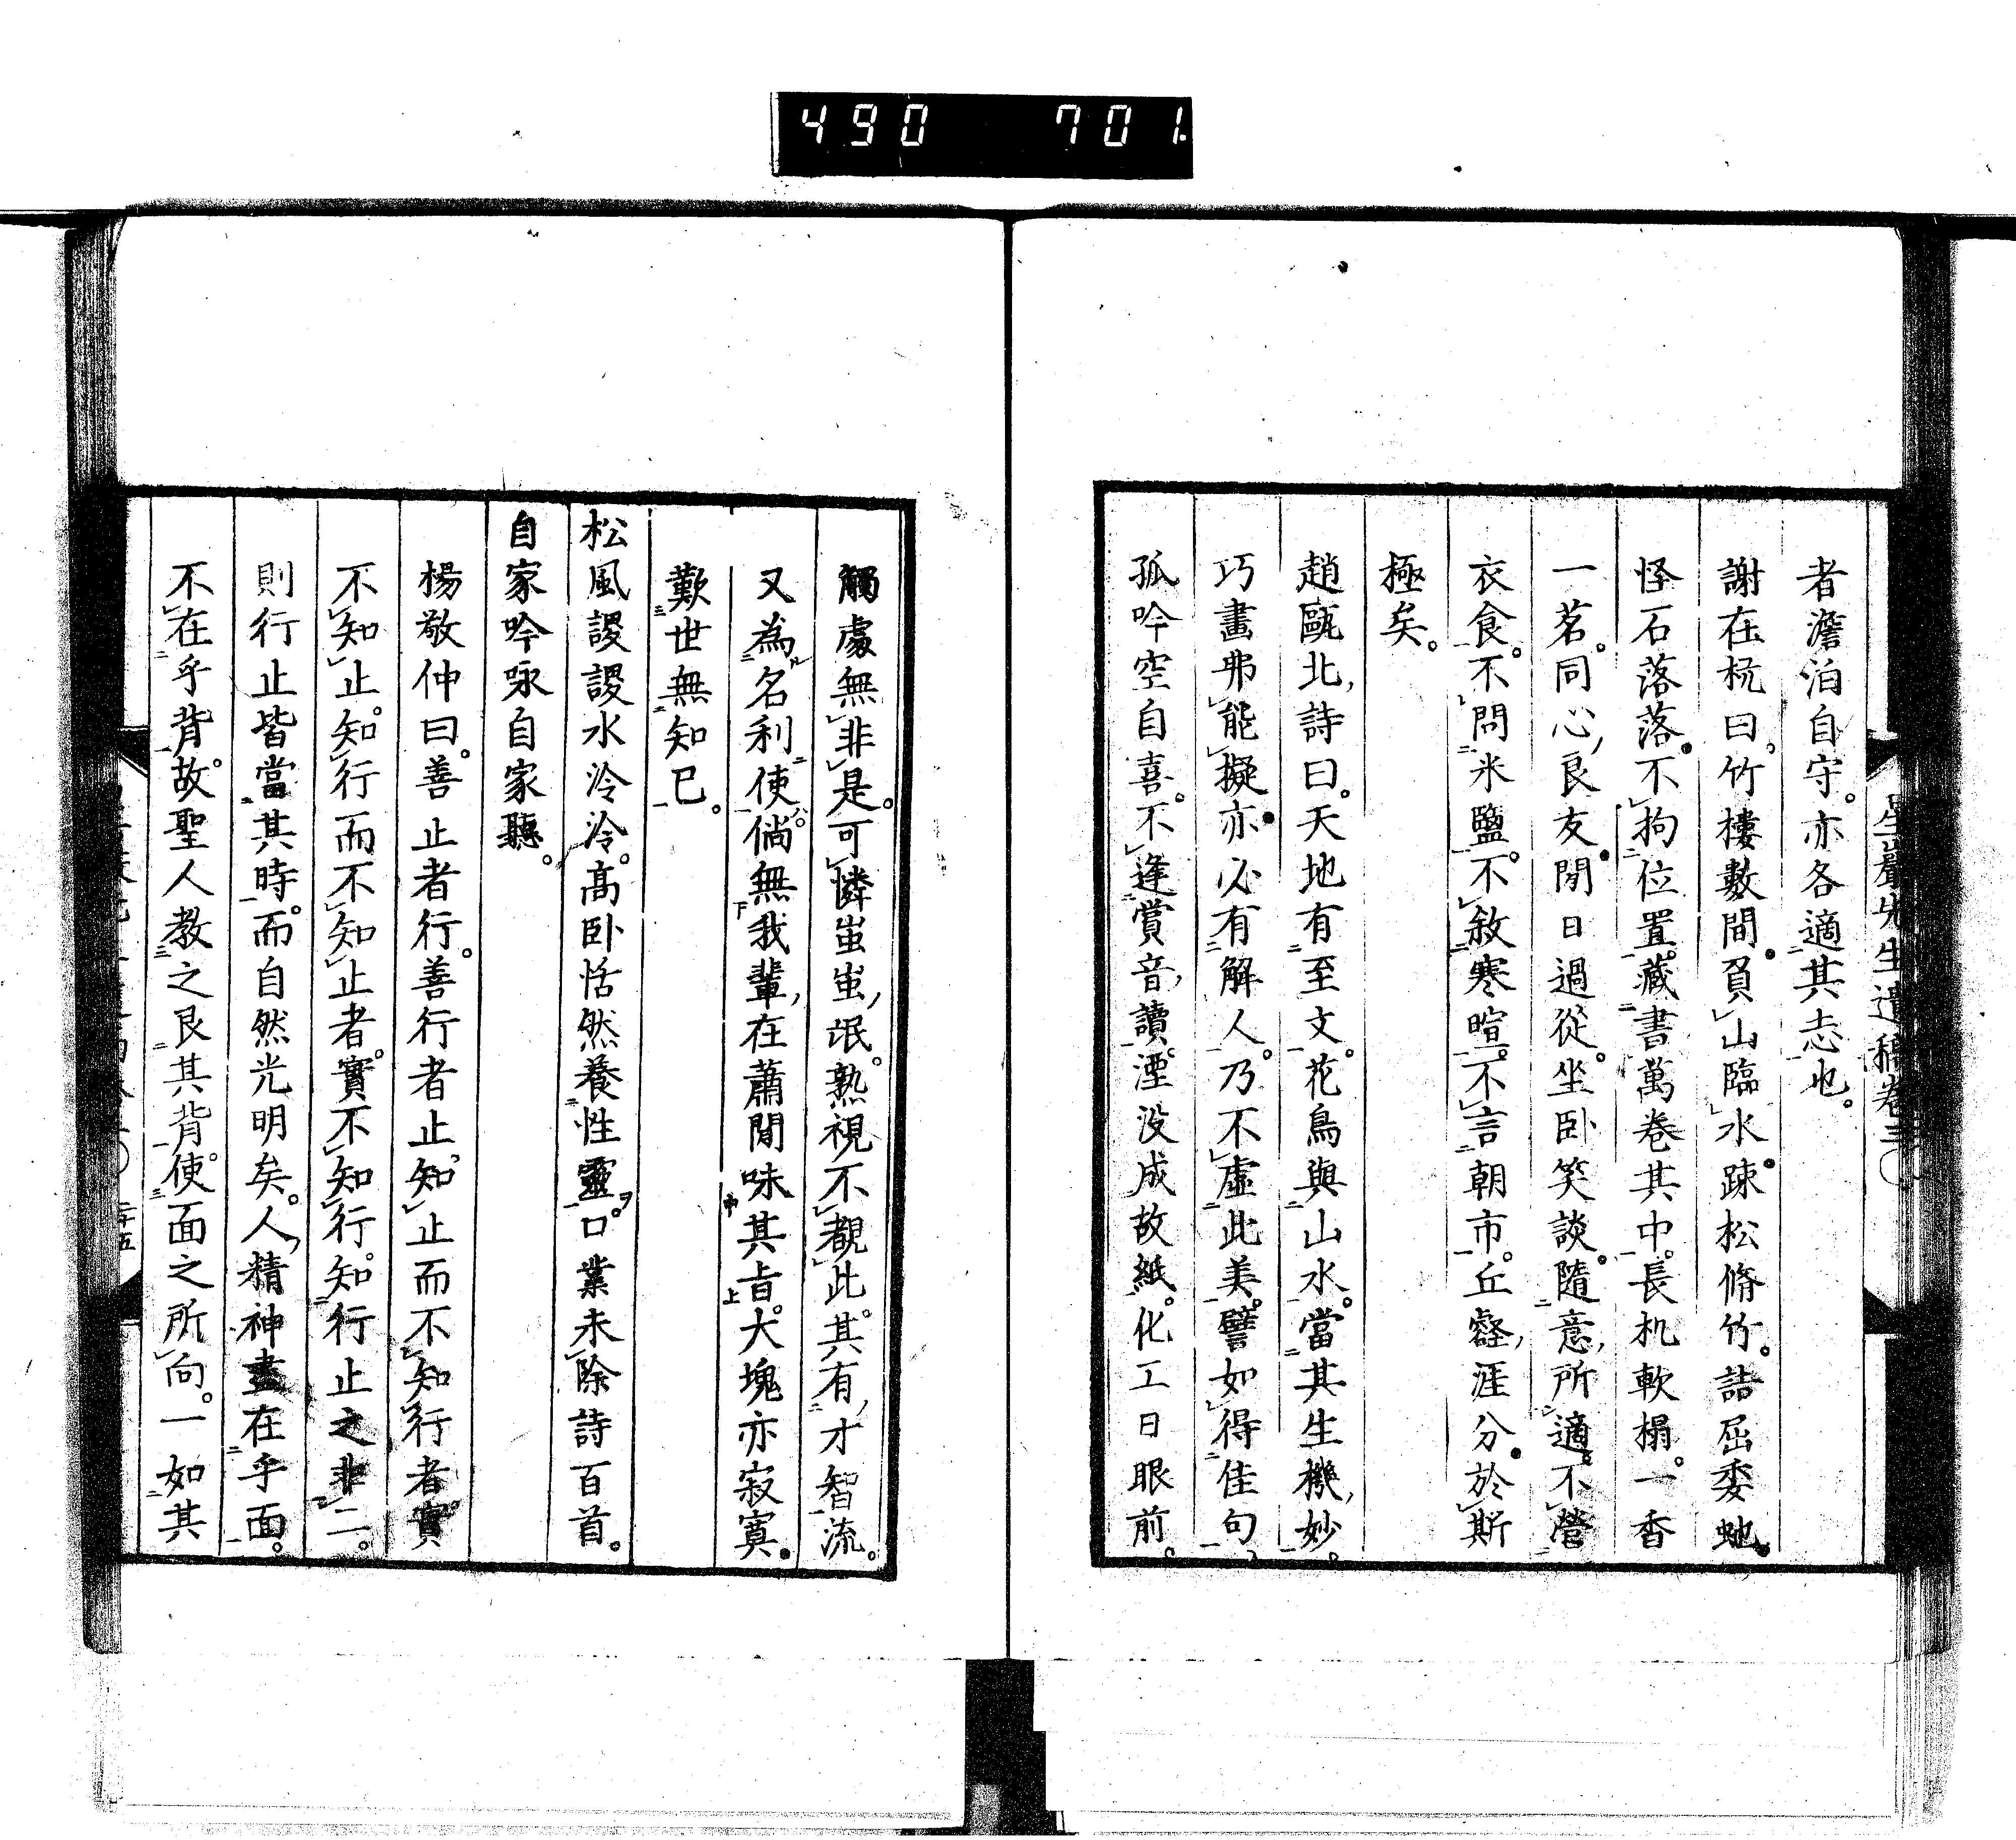 490 701
星巖先生遺稿卷三
者澹泊自守。亦各適其志也。
謝在杭曰。竹樓數間。負山臨水。踈松脩竹。詰屈委虵。
怪石落落。不拘位置。藏書萬卷其中。長机軟榻。一香
一茗。同心良友。閒日過從。坐卧笑談。隨意所適。不營
衣食。不問米鹽。不敘寒暄。不言朝市。丘壑涯分。於斯
極矣。
趙甌北詩曰。天地有至文。花鳥與山水。當其生機妙。
巧畫弗能擬。亦必有解人。乃不虛此美。譬如得佳句。
孤吟空自喜。不逢賞音讀。湮没成故紙。化工日眼前。
觸處無非是。可憐蚩蚩氓。熟視不覩此。其有才智流。
又為名利使。倘無我輩在蕭閒味其旨。大塊亦寂寞。
歎世無知已。
松風謖謖水泠泠。高卧恬然養性靈。口業未除詩百首。
自家吟咏自家聽。
楊敬仲曰。善止者行。善行者止。知止而不知行者。實
不知止。知行而不知止者。實不知行。知行止之非二。
則行止皆當其時。而自然光明矣。人精神盡在乎面。
不在乎背。故聖人教之艮其背。使面之所向。一如其
二十五